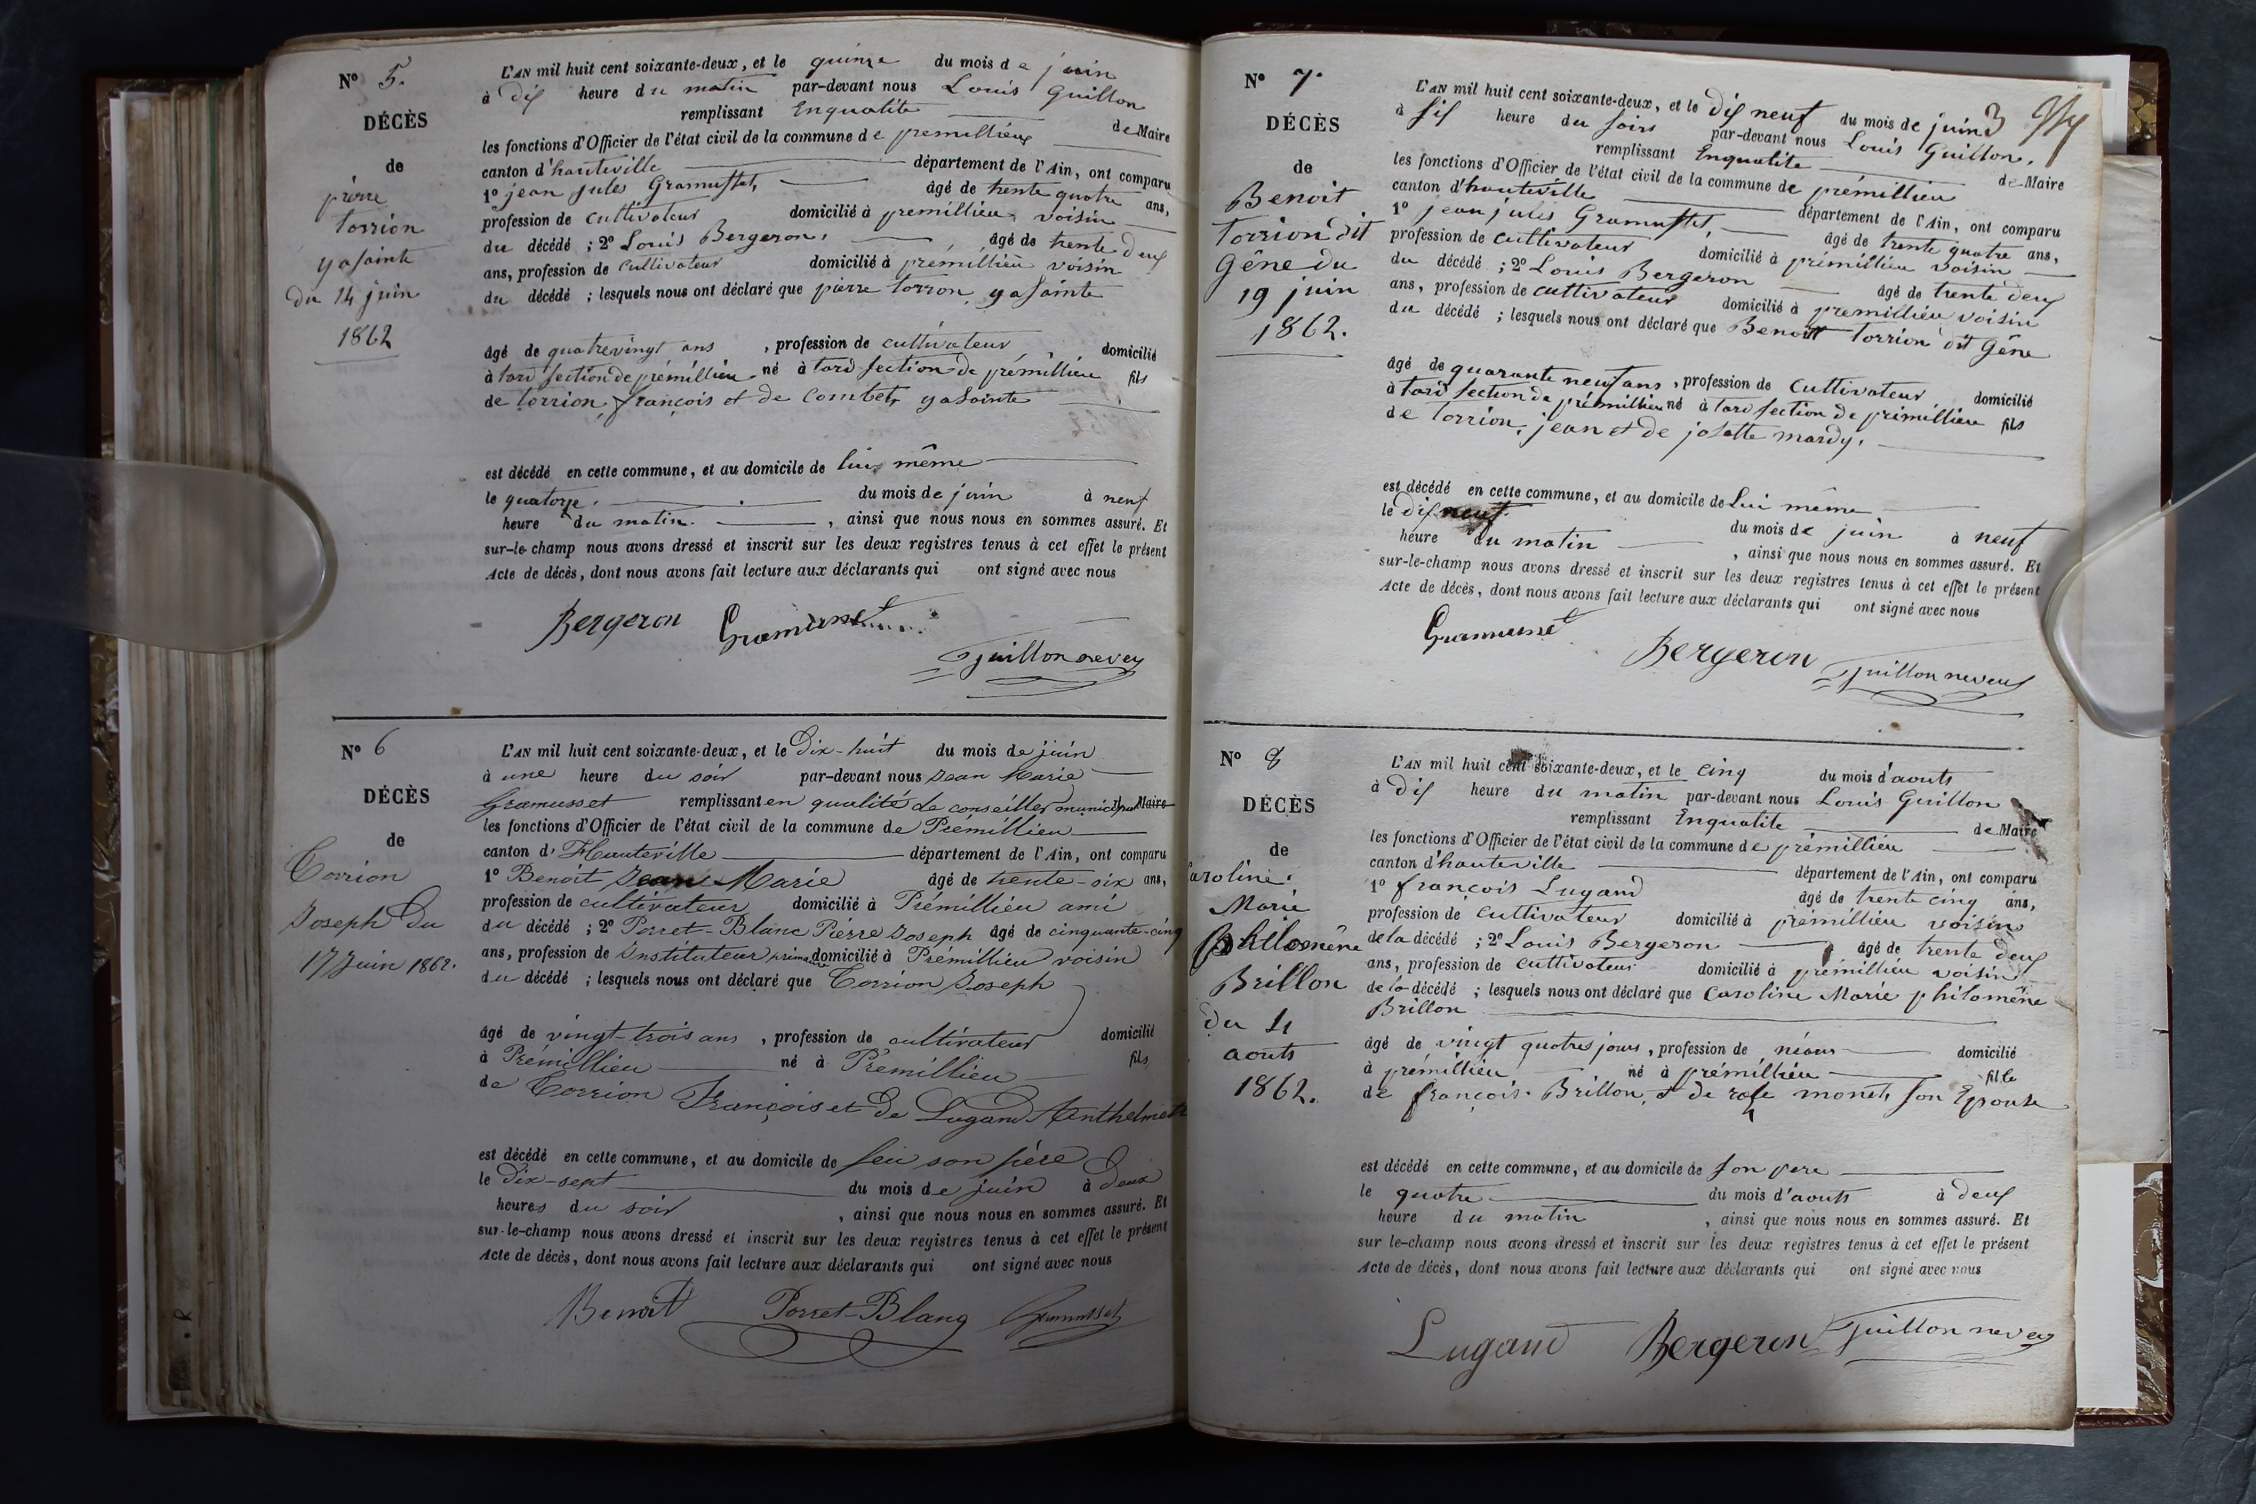 N° 5.
DÉCÈS
de
pierre
torrion
yasainte
du 14 juin
1862
L'AN mil huit cent soixante-deux, et le quinze du mois de juin
à dis heure du matin par-devant nous Louis Guillon
remplissant Enqualite de Maire
les fonctions d'Officier de l'état civil de la commune de premillieu
canton d'hauteville département de l'Ain, ont comparu
1° jean jules Gramusset, âgé de trente quatre ans,
profession de cultivateur domicilié à premillieu voisin
du décédé ; 2° Louis Bergeron, âgé de trente deux
ans, profession de cultivateur domicilié à prémillieu voisin
du décédé ; lesquels nous ont déclaré que pierre torron yasainte
âgé de quatrevingt ans , profession de cultivateur domicilié
à tard section de prémillieu né à tard section de prémillieu fils
de torrion, françois et de Combet, yasainte
est décédé en cette commune, et au domicile de lui même
le quatorze. du mois de juin à neuf
heure du matin. , ainsi que nous nous en sommes assuré. Et
sur-le-champ nous avons dressé et inscrit sur les deux registres tenus à cet effet le présent
Acte de décès, dont nous avons fait lecture aux déclarants qui ont signé avec nous
Bergeron Gramusset
Guillon neveu
N° 6
DÉCÈS
de
Torrion
Joseph Du
17 Juin 1862.
L'AN mil huit cent soixante-deux, et le Dix-huit du mois de juin
à une heure du soir par-devant nous Jean Marie
Gramusset remplissant en qualité de conseiller municipal Maire
les fonctions d'Officier de l'état civil de la commune de Prémillieu
canton d'Hauteville département de l'Ain, ont comparu
1° Benoit Jean Marie âgé de trente-six ans,
profession de cultivateur domicilié à Prémillieu ami
du décédé ; 2° Porret-Blanc Pierre Joseph âgé de cinquante-cinq
ans, profession de Instituteur primaire domicilié à Prémillieu voisin
du décédé ; lesquels nous ont déclaré que Torrion Joseph
âgé de vingt-trois ans , profession de cultivateur domicilié
à Prémillieu né à Prémillieu fils
de Torrion François et de Lugand Anthelmette
est décédé en cette commune, et au domicile de feu son père
le Dix-sept du mois de juin à Deux
heures du soir , ainsi que nous nous en sommes assuré. Et
sur-le-champ nous avons dressé et inscrit sur les deux registres tenus à cet effet le présent
Acte de décès, dont nous avons fait lecture aux déclarants qui ont signé avec nous
Benoit Porret-Blanc Gramusset
N° 7.
DÉCÈS
de
Benoit
torrion dit
Gêne du
19 juin
1862.
L'AN mil huit cent soixante-deux, et le dis neuf du mois de juin 3
à sis heure du soirs par-devant nous Louis Guillon,
remplissant Enqualite de Maire
les fonctions d'Officier de l'état civil de la commune de prémillieu
canton d'hauteville département de l'Ain, ont comparu
1° jean jules Gramusset, âgé de trente quatre ans,
profession de cultivateur domicilié à prémillieu voisin
du décédé ; 2° Louis Bergeron âgé de trente deux
ans, profession de cultivateur domicilié à premillieu voisin
du décédé ; lesquels nous ont déclaré que Benoit torrion dit Gêne
âgé de quarante neuf ans , profession de cultivateur domicilié
à tard section de prémillieu né à tard section de prémillieu fils
de torrion, jean et de josette mardy,
est décédé en cette commune, et au domicile de Lui même
le dis neuf du mois de juin à neuf
heure du matin , ainsi que nous nous en sommes assuré. Et
sur-le-champ nous avons dressé et inscrit sur les deux registres tenus à cet effet le présent
Acte de décès, dont nous avons fait lecture aux déclarants qui ont signé avec nous
Gramusset
Bergeron Guillon neveu
N° 8
DÉCÈS
de
Caroline
Marie
philomène
Brillon
du 4
aouts
1862.
L'AN mil huit cent soixante-deux, et le cinq du mois d'aouts
à dis heure du matin par-devant nous Louis Guillon
remplissant Enqualite de Maire
les fonctions d'Officier de l'état civil de la commune de prémillieu
canton d'hauteville département de l'Ain, ont comparu
1° françois Lugand âgé de trente cinq ans,
profession de cultivateur domicilié à prémillieu voisin
de la décédé ; 2° Louis Bergeron âgé de trente deux
ans, profession de cultivateur domicilié à prémillieu voisin
de la décédé ; lesquels nous ont déclaré que Caroline Marie philomène
Brillon
âgé de vingt quatres jours , profession de néant domicilié
à prémillieu né à prémillieu fille
de françois Brillon, et de rose monet, son Epouse
est décédé en cette commune, et au domicile de son pere
le quatre du mois d'aouts à deux
heure du matin , ainsi que nous nous en sommes assuré. Et
sur le-champ nous avons dressé et inscrit sur les deux registres tenus à cet effet le présent
Acte de décès, dont nous avons fait lecture aux déclarants qui ont signé avec nous
Lugand Bergeron Guillon neveu